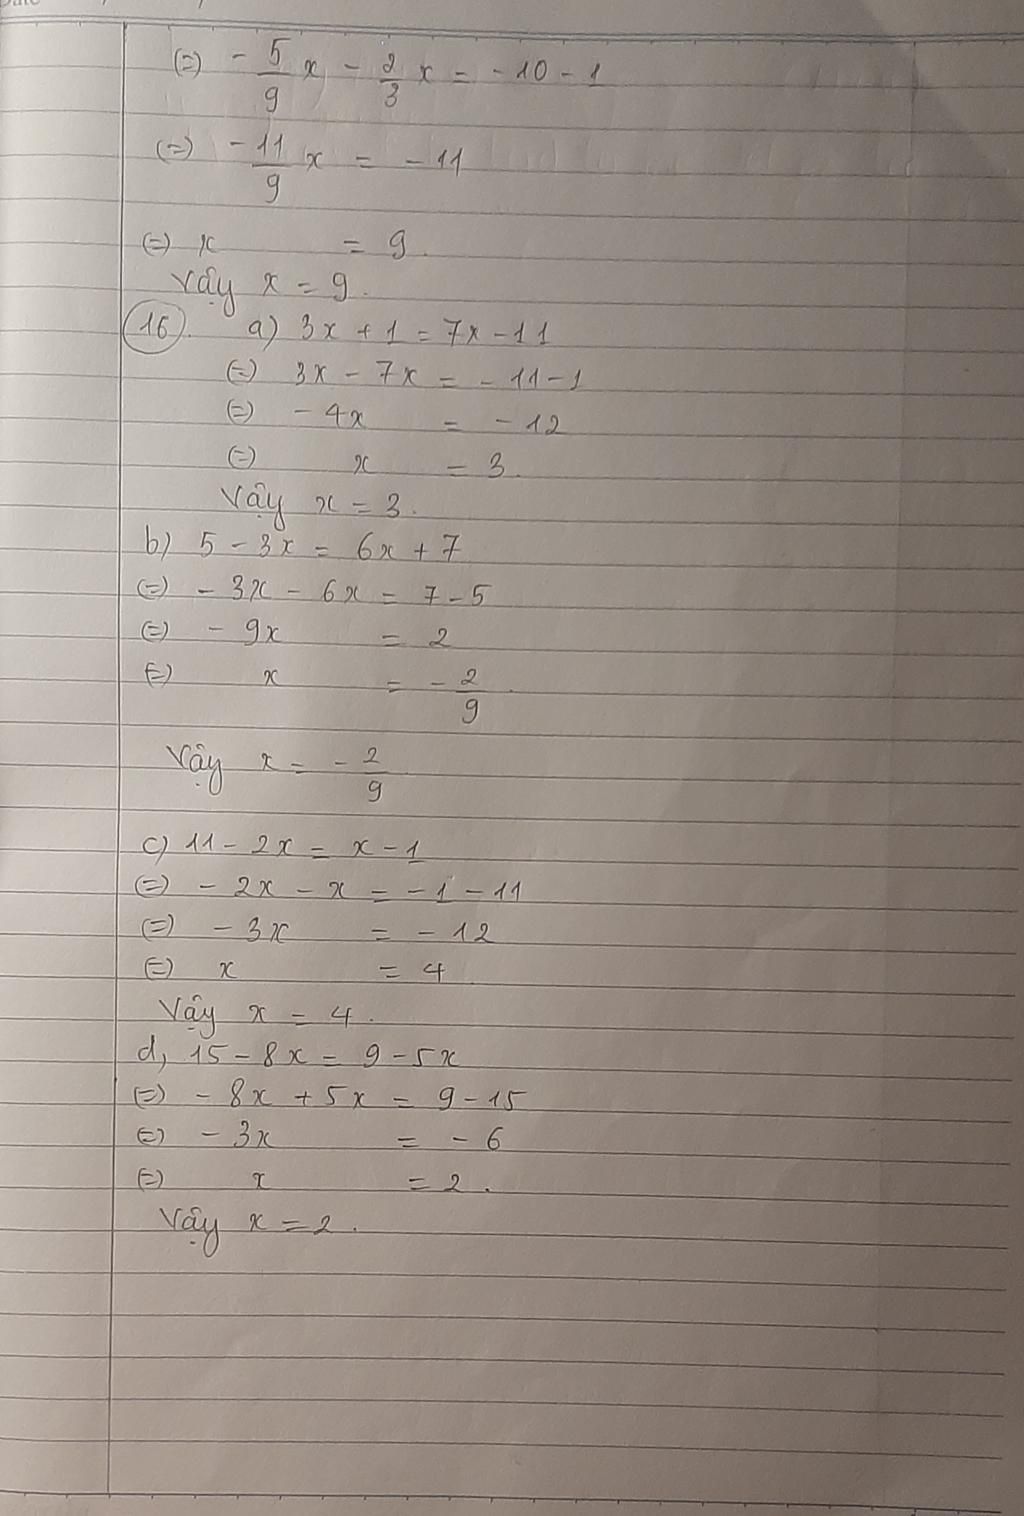 (=) - 5/9 x - 2/3 x = -10 - 1
(=) - 11/9 x = - 11
(=) x = 9.
Vậy x = 9.
16. a) 3x + 1 = 7x - 11
(=) 3x - 7x = - 11 - 1
(=) - 4x = - 12
(=) x = 3.
Vậy x = 3.
b) 5 - 3x = 6x + 7
(=) - 3x - 6x = 7 - 5
(=) - 9x = 2
(=) x = - 2/9.
Vậy x = - 2/9
c) 11 - 2x = x - 1
(=) - 2x - x = - 1 - 11
(=) - 3x = - 12
(=) x = 4
Vậy x = 4.
d, 15 - 8x = 9 - 5x
(=) - 8x + 5x = 9 - 15
(=) - 3x = - 6
(=) x = 2.
Vậy x = 2.